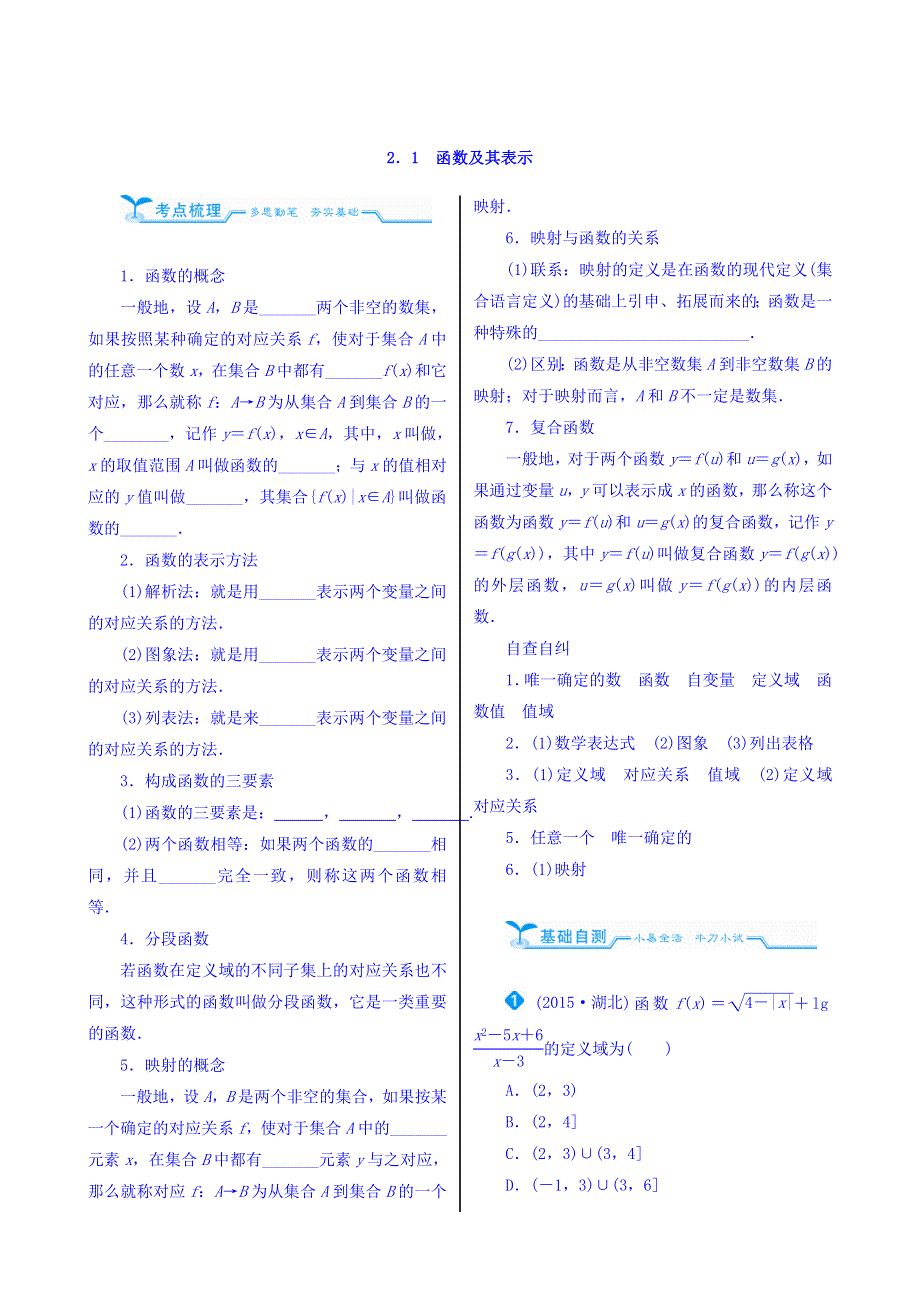 2．1　函数及其表示
考点梳理 多思勤笔 夯实基础
1．函数的概念
一般地，设 A，B 是_______两个非空的数集，
如果按照某种确定的对应关系 f，使对于集合 A 中
的任意一个数 x，在集合 B 中都有_______f(x)和它
对应，那么就称 f：A→B 为从集合 A 到集合 B 的一
个________，记作 y＝f(x)，x∈A，其中，x 叫做，
x 的取值范围 A 叫做函数的_______；与 x 的值相对
应的 y 值叫做_______，其集合{f(x)|x∈A}叫做函
数的_______．
2．函数的表示方法
(1)解析法：就是用_______表示两个变量之间
的对应关系的方法．
(2)图象法：就是用_______表示两个变量之间
的对应关系的方法．
(3)列表法：就是来_______表示两个变量之间
的对应关系的方法．
3．构成函数的三要素
(1)函数的三要素是：______，_______，_______.
(2)两个函数相等：如果两个函数的_______相
同，并且_______完全一致，则称这两个函数相
等．
4．分段函数
若函数在定义域的不同子集上的对应关系也不
同，这种形式的函数叫做分段函数，它是一类重要
的函数．
5．映射的概念
一般地，设 A，B 是两个非空的集合，如果按某
一个确定的对应关系 f，使对于集合 A 中的_______
元素 x，在集合 B 中都有_______元素 y 与之对应，
那么就称对应 f：A→B 为从集合 A 到集合 B 的一个
映射．
6．映射与函数的关系
(1)联系：映射的定义是在函数的现代定义(集
合语言定义)的基础上引申、拓展而来的；函数是一
种特殊的__________________________．
(2)区别：函数是从非空数集 A 到非空数集 B 的
映射；对于映射而言，A 和 B 不一定是数集．
7．复合函数
一般地，对于两个函数 y＝f(u)和 u＝g(x)，如
果通过变量 u，y 可以表示成 x 的函数，那么称这个
函数为函数 y＝f(u)和 u＝g(x)的复合函数，记作 y
＝f(g(x))，其中 y＝f(u)叫做复合函数 y＝f(g(x))
的外层函数，u＝g(x)叫做 y＝f(g(x))的内层函
数．
自查自纠
1．唯一确定的数　函数　自变量　定义域　函
数值　值域
2．(1)数学表达式　(2)图象　(3)列出表格
3．(1)定义域　对应关系　值域　(2)定义域
对应关系
5．任意一个　唯一确定的
6．(1)映射
基础自测 小易全活 牛刀小试
1 (2015·湖北)函数 f(x)＝√(4－|x|)＋lg
(x²－5x＋6)/(x－3)的定义域为(　　)
A．(2，3)
B．(2，4]
C．(2，3)∪(3，4]
D．(－1，3)∪(3，6]